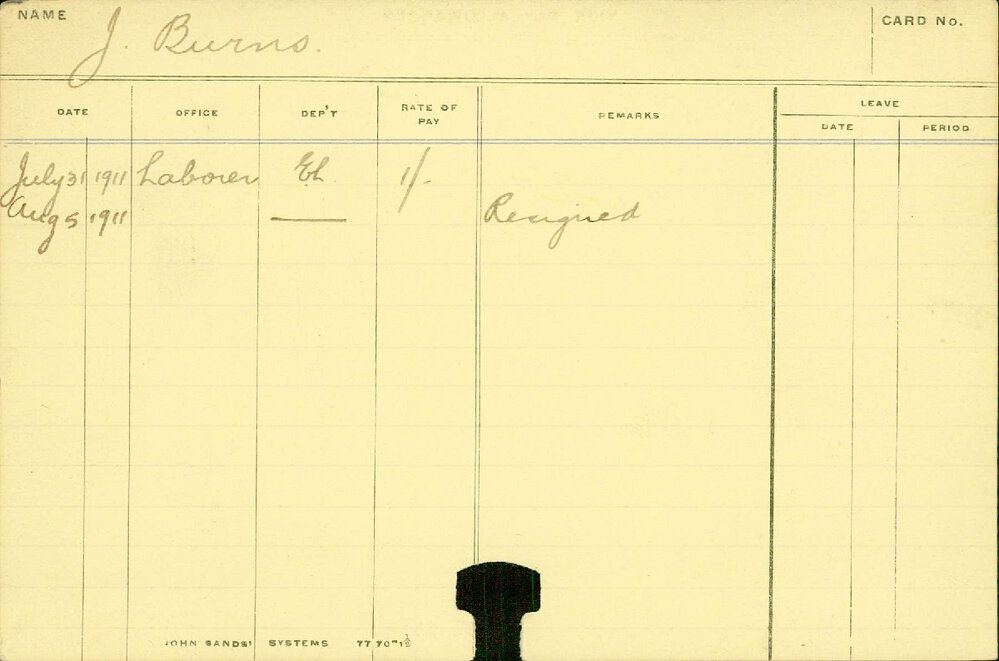 NAME J. Burns. CARD No.
DATE OFFICE DEP'T RATE OF PAY REMARKS LEAVE
DATE PERIOD
July 31 1911 Laborer 1/-
Aug 5 1911 —— Resigned
JOHN SANDS' SYSTEMS